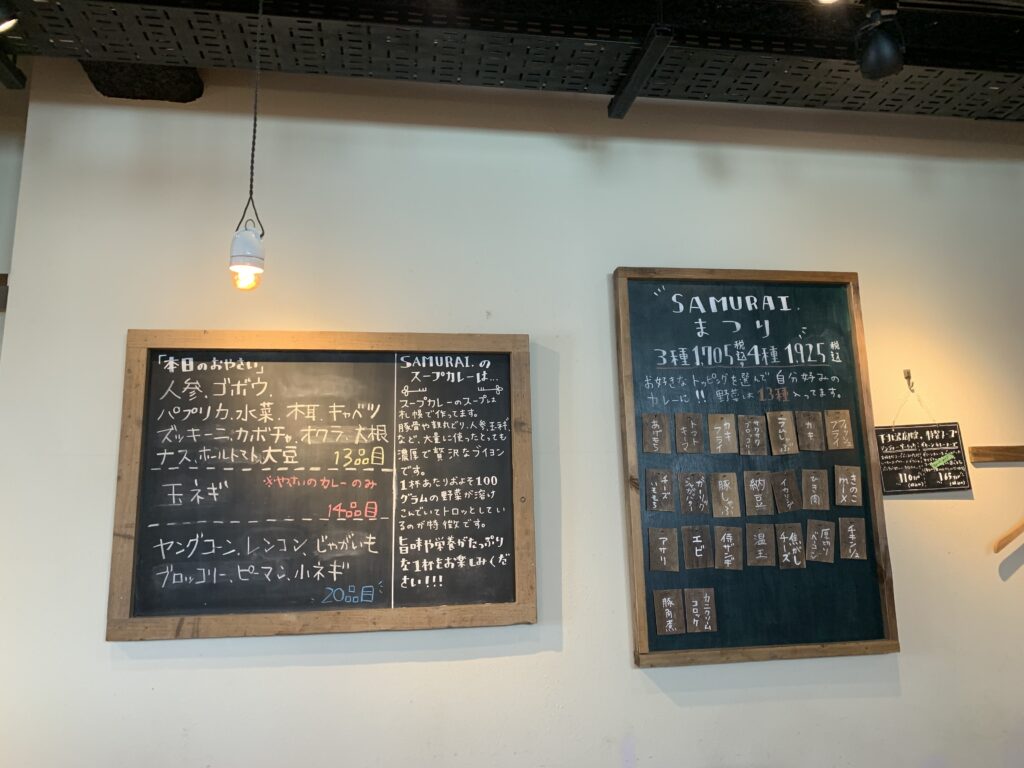 「本日のおやさい」
人参、ゴボウ、
パプリカ、水菜、木耳、キャベツ
ズッキーニ、カボチャ、オクラ、大根
ナス、ホールトマト、大豆 13品目
玉ネギ ※やさいのカレーのみ
14品目
ヤングコーン、レンコン、じゃがいも
ブロッコリー、ピーマン、小ネギ
20品目
SAMURAI.の
スープカレーは…
スープカレーのスープは
札幌で作ってます。
豚骨や親丸どり、人参、玉ネギ
など、大量に使ったとっても
濃厚で贅沢なブイヨン
です。
1杯あたりおよそ100
グラムの野菜が溶け
こんでいてトロッとしてい
るのが特徴です。
旨味や栄養がたっぷり
な1杯をお楽しみくだ
さい!!!
SAMURAI.
まつり
3種1,705税込4種1,925税込
お好きなトッピングを選んで自分好みの
カレーに!!野菜は13種入ってます。
あげもち
カキフライ
ラムしゃぶ
カキ
フィッシュフライ
チーズいももち
豚しゃぶ
納豆
ひき肉
きのこ
アサリ
エビ
侍ザンギ
温玉
焦がしチーズ
厚切りベーコン
チキン1/2
豚角煮
カニクリームコロッケ
110
165